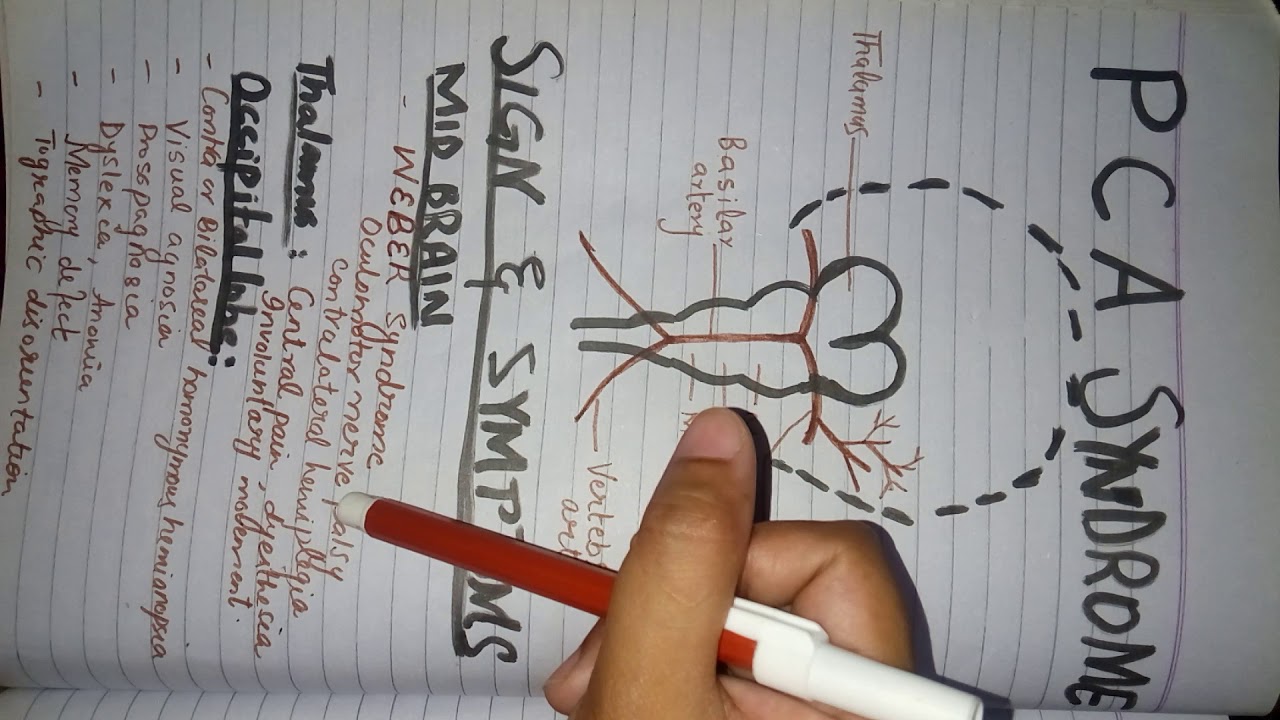 PCA SYNDROME
Thalamus
Basilar
artery
SIGN & SYMPTOMS
MID BRAIN
- WEBER Syndrome
Oculomotor nerve palsy
contralateral hemiplegia
Thalamus : Central pain, dysesthesia
Involuntary movement.
Occipital lobe:
- Contra or Bilatareal homonymous hemianopia
- Visual agnosia
- Prosopagnosia
- Dyslexea, Anomia
- Memory defect
- Tographic disorientation